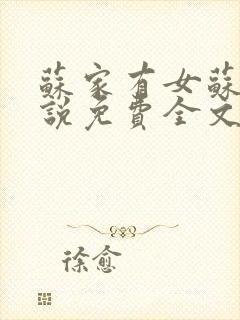 蘇家有女蘇
說免費全文
徐愈